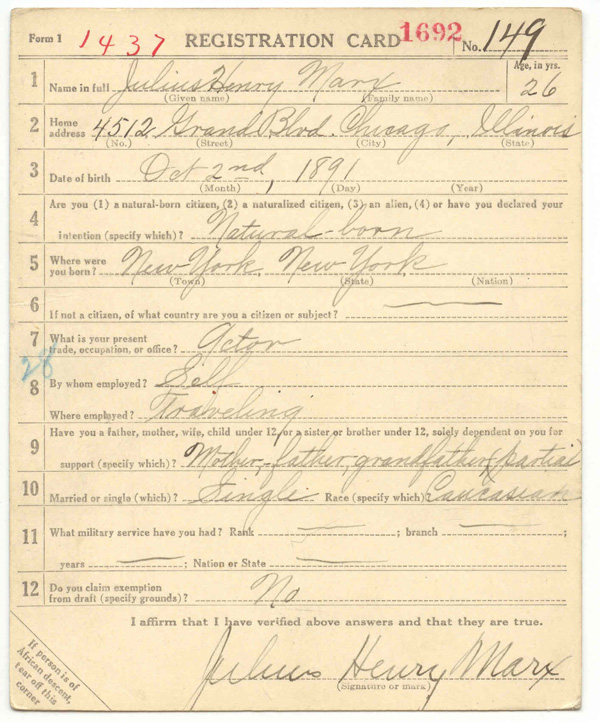 Form 1 1437 REGISTRATION CARD 1692 No. 149
1 Name in full Julius Henry Marx Age, in yrs. 26
(Given name) (Family name)
2 Home address 4512 Grand Blvd. Chicago, Illinois
(No.) (Street) (City) (State)
3 Date of birth Oct 2nd, 1891
(Month) (Day) (Year)
4 Are you (1) a natural-born citizen, (2) a naturalized citizen, (3) an alien, (4) or have you declared your
intention (specify which)? Natural-born
5 Where were you born? New York, New York
(Town) (State) (Nation)
6 If not a citizen, of what country are you a citizen or subject?
7 What is your present trade, occupation, or office? Actor
28
8 By whom employed? Self
Where employed? Traveling
9 Have you a father, mother, wife, child under 12, or a sister or brother under 12, solely dependent on you for
support (specify which)? Mother, father, grandfather (partial
10 Married or single (which)? Single Race (specify which)? Caucasian
11 What military service have you had? Rank ; branch ;
years ; Nation or State
12 Do you claim exemption from draft (specify grounds)? No
I affirm that I have verified above answers and that they are true.
Julius Henry Marx
(Signature or mark)
If person is of
African descent,
tear off this
corner